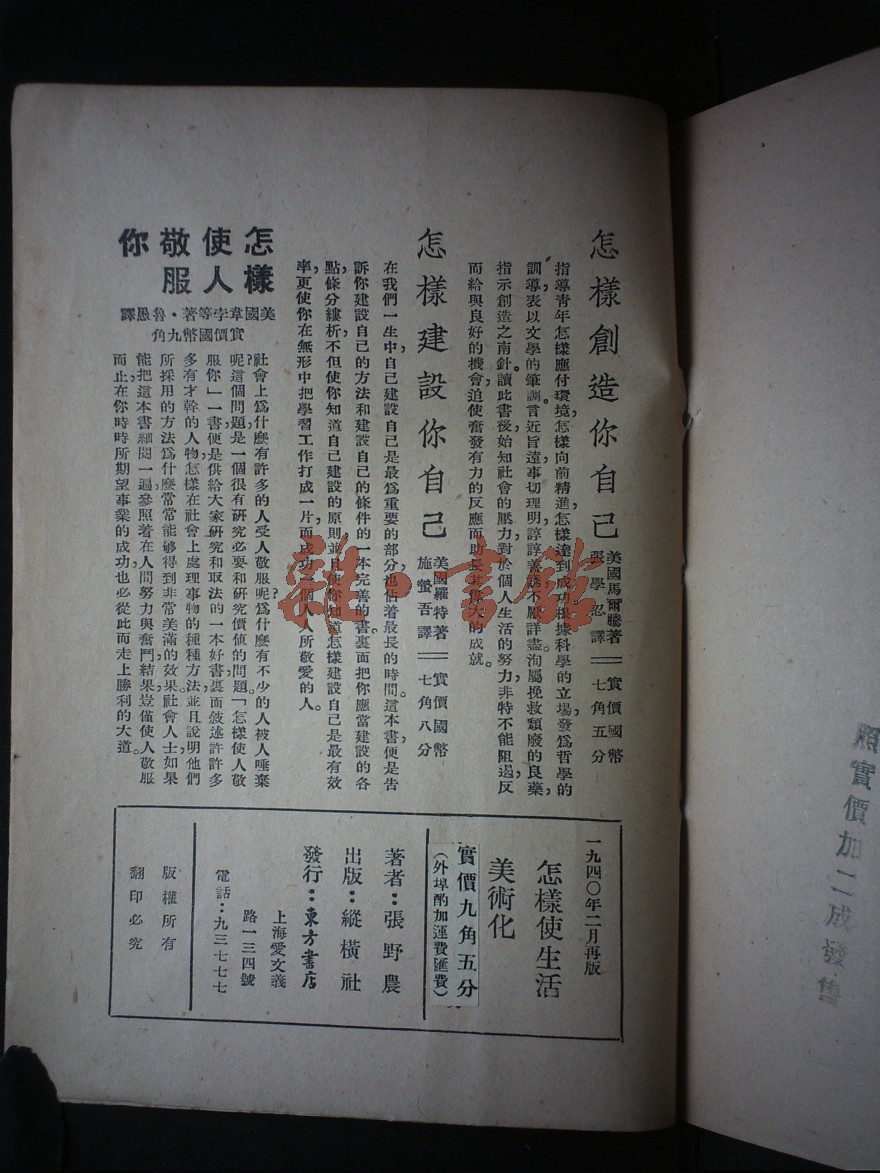 怎樣創造你自己
美國馬爾騰著
張學忍譯
實價國幣
七角五分
指導青年怎樣應付環境，怎樣向前精進，怎樣達到成功。根據科學的立場，發爲哲學的
訓導，表以文學的筆調，言近旨遠，事切理明，諄諄善誘，不厭詳盡，洵屬挽救頹廢的良藥，
指示創造之南針。讀此書後，始知社會的壓力，對於個人生活的努力，非特不能阻遏，反
而給與良好的機會，迫使奮發有力的反應，而助長其偉大的成就。
怎樣建設你自己
美國羅特著
施螢吾譯
實價國幣
七角八分
在我們一生中，自己建設自己是最爲重要的部分，也佔着最長的時間。這本書便是告
訴你建設自己的方法和建設自己的條件的一本完善的書。裏面把你應當建設的各
點，條分縷析，不但使你知道自己建設的原則，並且使你知道怎樣建設自己是最有效
率，更使你在無形中把學習工作打成一片，而成功一個人人所敬愛的人。
怎樣使人敬服你
美國韋孛等著·魯愚譯
實價國幣九角
社會上爲什麽有許多的人受人敬服呢？爲什麽有不少的人被人唾棄
呢？這個問題，是一個很有研究必要和研究價值的問題。「怎樣使人敬
服你」一書，便是供給大家研究和取法的一本好書。裏面敘述許許多
多有才幹的人物，怎樣在社會上處理事物的種種方法，並且說明他們
所採用的方法，爲什麽常常能够得到非常美滿的效果。社會人士如果
能把這本書細閱一遍，參照着在人間努力與奮鬥，結果豈僅使人敬服
而止，在你時時所期望事業的成功，也必從此而走上勝利的大道。
一九四〇年二月再版
怎樣使生活
美術化
實價九角五分
（外埠酌加運費匯費）
著者：張野農
出版：縱橫社
發行：東方書店
上海愛文義
路一三四號
電話：九三七七七
版權所有
翻印必究
照實價加二成發售
雜·書館